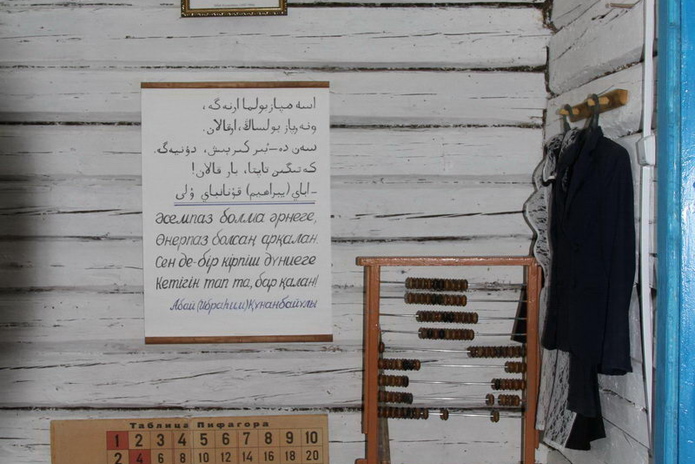 اسه مپازبولما ارنەگە،
ونەرپاز بولساڭ، ارقالان.
سەن دە-ٴبىر كىرپىش، دۇنيەگە.
كەتىگىن تاپتا، بار قالان!
-اباي (يبراھيم) قۇنانباي ۇلى
Әсемпаз болма әрнеге,
Өнерпаз болсаң арқалан.
Сен де-бір кірпіш дүниеге
Кетігін тап та, бар қалан!
Абай (Ибраһим) Құнанбайұлы
Таблица Пифагора
1 2 3 4 5 6 7 8 9 10
2 4 6 8 10 12 14 16 18 20